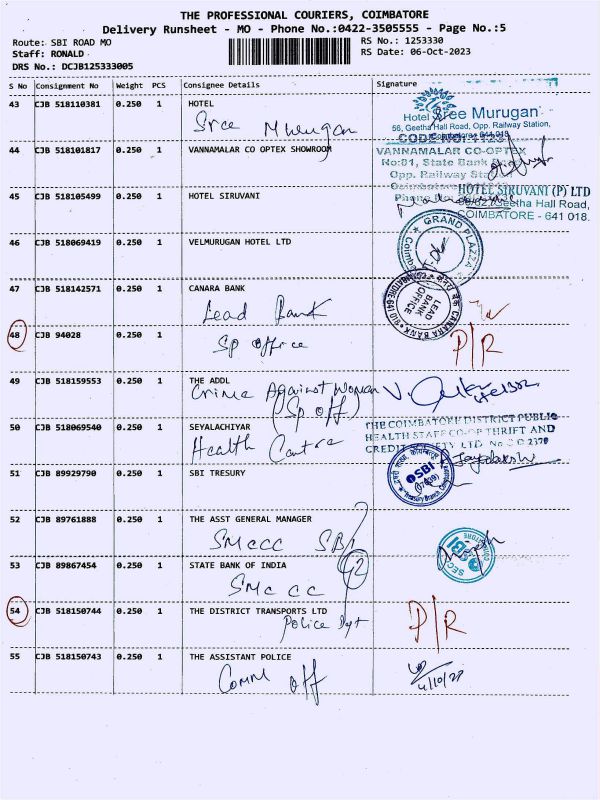 THE PROFESSIONAL COURIERS, COIMBATORE
Delivery Runsheet - MO - Phone No.:0422-3505555 - Page No.:5
Route: SBI ROAD MO
RS No.: 1253330
Staff: RONALD
RS Date: 06-Oct-2023
DRS No.: DCJB125333005
S No Consignment No Weight PCS Consignee Details Signature
43 CJB 518110381 0.250 1 HOTEL
Sree Murugan
Hotel Sree Murugan
56, Geetha Hall Road, Opp. Railway Station,
44 CJB 518101817 0.250 1 VANNAMALAR CO OPTEX SHOWROOM
VANNAMALAR CO-OPTEX
No:81, State Bank
Opp. Railway
45 CJB 518105499 0.250 1 HOTEL SIRUVANI
HOTEL SIRUVANI (P) LTD
Geetha Hall Road,
COIMBATORE - 641 018.
46 CJB 518069419 0.250 1 VELMURUGAN HOTEL LTD
GRAND PLAZZA
47 CJB 518142571 0.250 1 CANARA BANK
Lead Bank
LEAD
BANK
OFFICE
CANARA BANK
48 CJB 94028 0.250 1
Sp office
P/R
49 CJB 518159553 0.250 1 THE ADDL
Crime Against Woman
(Sp off)
50 CJB 518069540 0.250 1 SEYALACHIYAR
Health Centre
THE COIMBATORE DISTRICT PUBLIC
HEALTH STAFF CO-OP THRIFT AND
51 CJB 89929790 0.250 1 SBI TRESURY
SBI
52 CJB 89761888 0.250 1 THE ASST GENERAL MANAGER
SMCCC SBI
SBI
53 CJB 89867454 0.250 1 STATE BANK OF INDIA
SMC CC
54 CJB 518150744 0.250 1 THE DISTRICT TRANSPORTS LTD
Police Dpt
P/R
55 CJB 518150743 0.250 1 THE ASSISTANT POLICE
Comm off